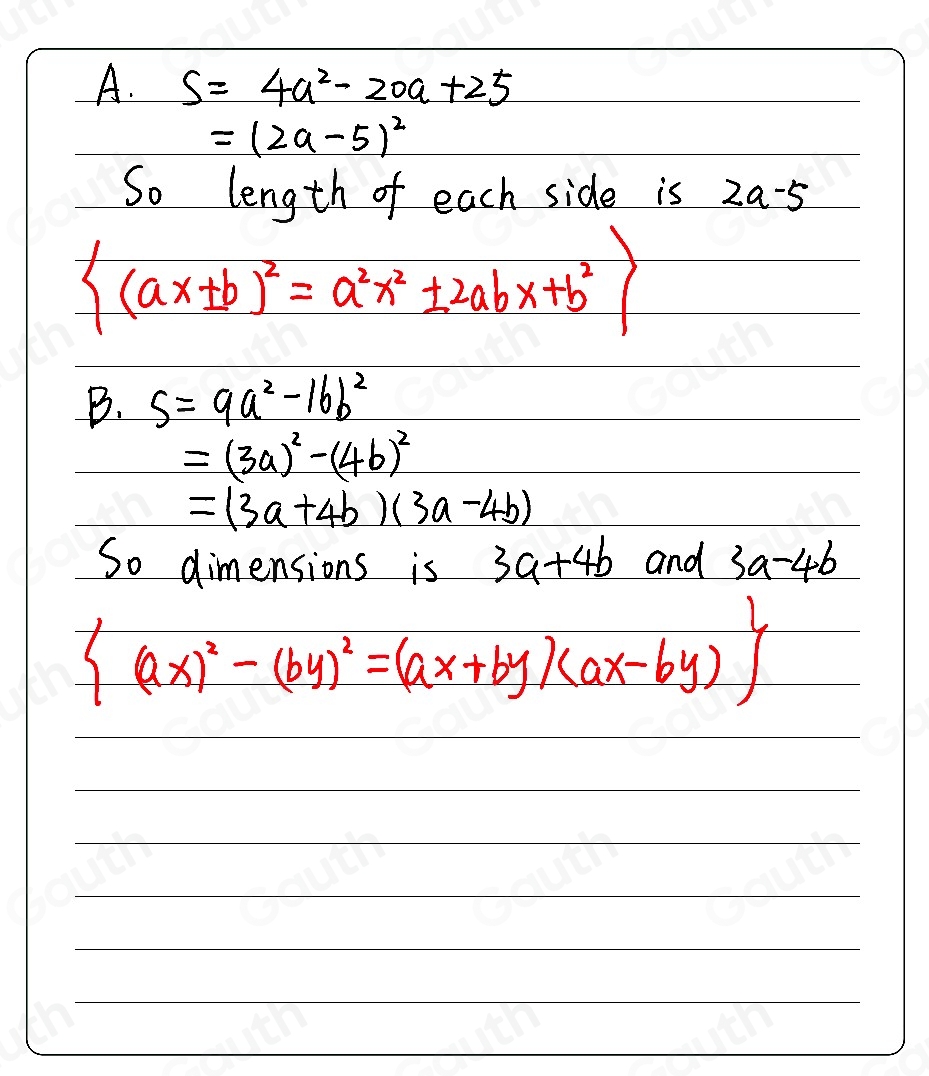 A. S = 4a² - 20a + 25
= (2a - 5)²
So length of each side is 2a-5
{ (ax ± b)² = a²x² ± 2abx + b² }
B. S = 9a² - 16b²
= (3a)² - (4b)²
= (3a + 4b)(3a - 4b)
So dimensions is 3a+4b and 3a-4b
{ (ax)² - (by)² = (ax + by)(ax - by) }
Gauth